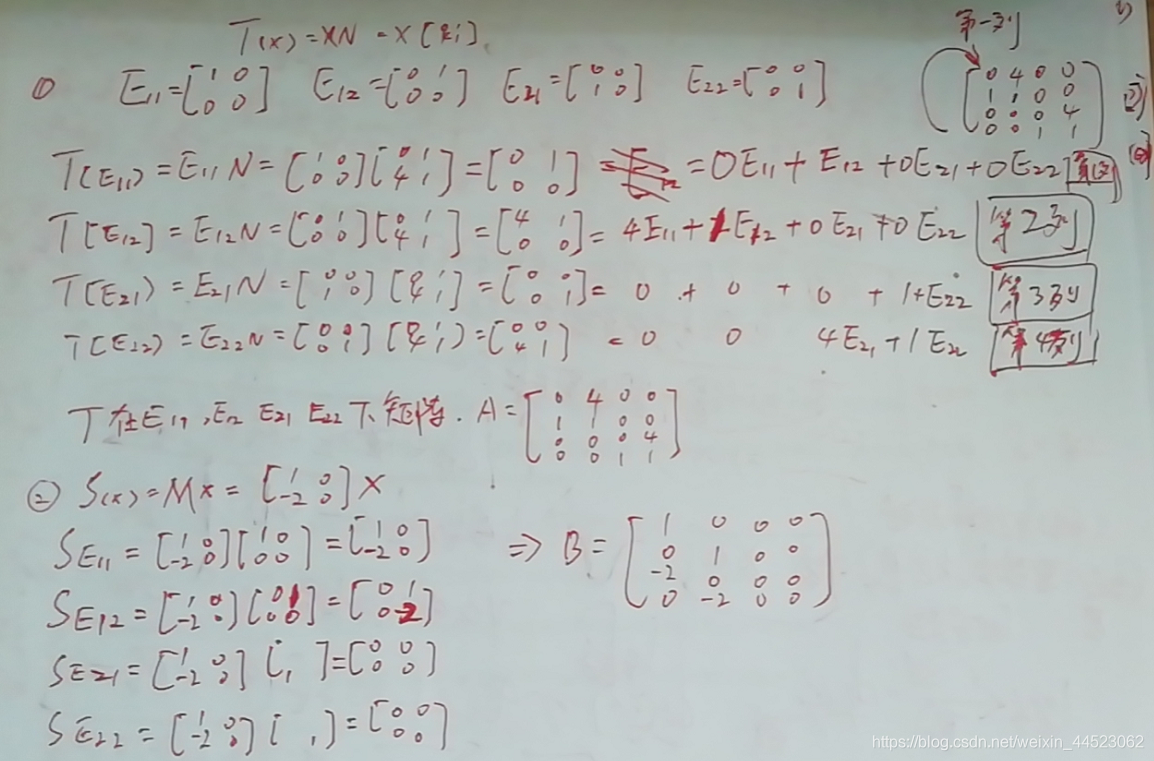 T(x) = XN = X[0 1; 4 1]
第一列
① E11=[1 0; 0 0] E12=[0 1; 0 0] E21=[0 0; 1 0] E22=[0 0; 0 1]
[0 4 0 0; 1 1 0 0; 0 0 0 4; 0 0 1 1]
T(E11) = E11 N = [1 0; 0 0][0 1; 4 1] = [0 1; 0 0] = 0E11 + E12 + 0E21 + 0E22
T[E12] = E12N = [0 1; 0 0][0 1; 4 1] = [4 1; 0 0] = 4E11 + 1E12 + 0E21 + 0E22 第2列
T(E21) = E21N = [0 0; 1 0][0 1; 4 1] = [0 0; 0 1] = 0 + 0 + 0 + 1+E22 第3列
T(E22) = E22N = [0 0; 0 1][0 1; 4 1) = [0 0; 4 1] = 0 0 4E21 + 1E22 第4列
T在E11, E12 E21 E22下矩阵. A = [0 4 0 0; 1 1 0 0; 0 0 0 4; 0 0 1 1]
② S(x) = Mx = [1 0; -2 0]X
SE11 = [1 0; -2 0][1 0; 0 0] = [1 0; -2 0] ⇒ B = [1 0 0 0; 0 1 0 0; -2 0 0 0; 0 -2 0 0]
SE12 = [1 0; -2 0][0 1; 0 0] = [0 1; 0 -2]
SE21 = [1 0; -2 0][1 ] = [0 0; 0 0]
SE22 = [1 0; -2 0][ 1) = [0 0; 0 0]
https://blog.csdn.net/weixin_44523062